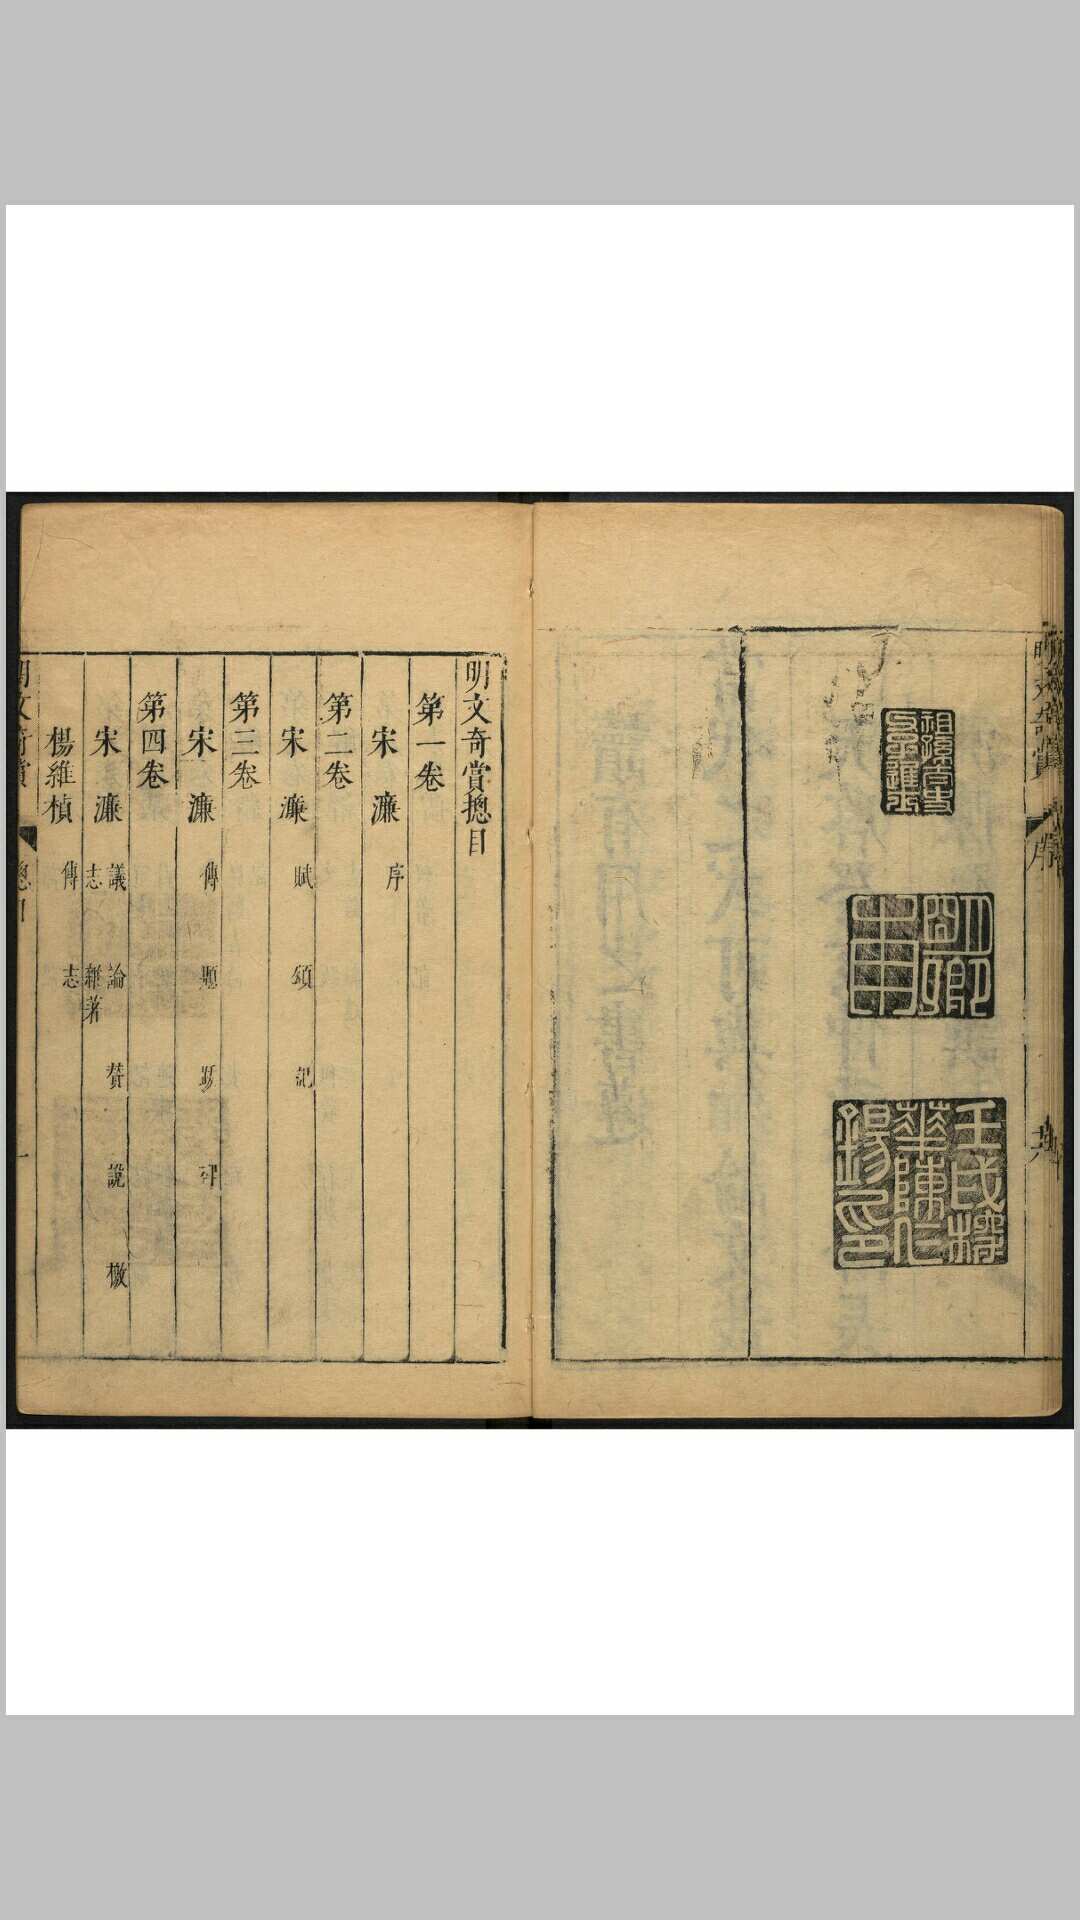 明文奇賞
序
明卿
壬戌榜
華陳仁
錫印
明文奇賞總目
第一卷
宋濂 序
第二卷
宋濂 賦 頌 記
第三卷
宋濂 傳 題 跋 碑
第四卷
宋濂 議 論 贊 說 檄
志 雜著
楊維楨 傳 志
明文奇賞 總目 一